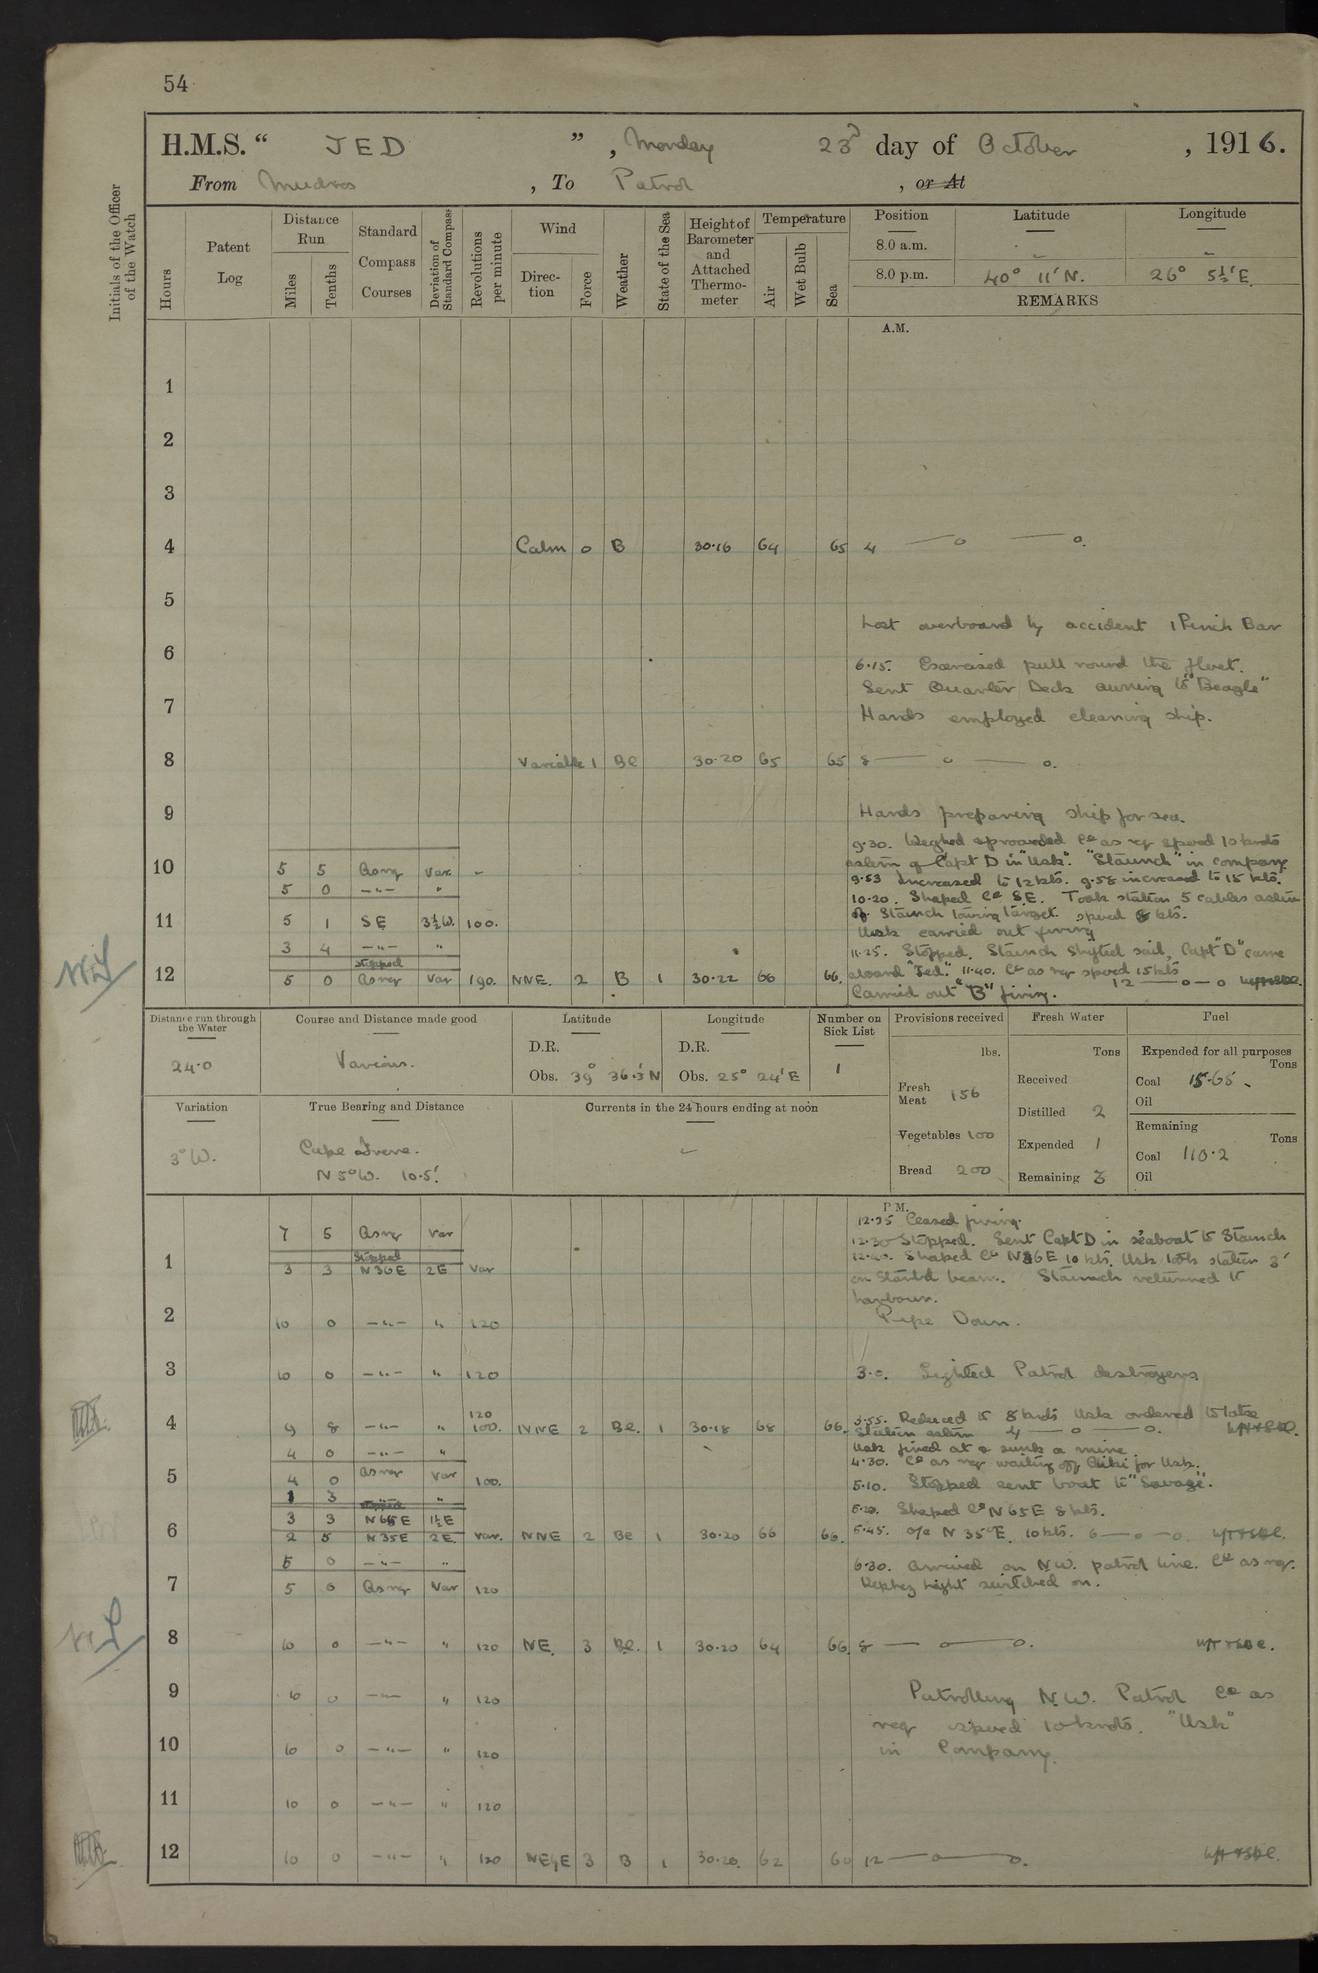 54
H.M.S. “ JED ” , Monday 23rd day of October , 1916.
From Mudros , To Patrol , or At
Initials of the Officer of the Watch
Hours
Patent Log
Distance Run
Miles
Tenths
Standard Compass Courses
Deviation of Standard Compass
Revolutions per minute
Wind
Direction
Force
Weather
State of the Sea
Height of Barometer and Attached Thermometer
Temperature
Air
Wet Bulb
Sea
Position Latitude Longitude
8.0 a.m. - -
8.0 p.m. 40° 11' N. 26° 5½' E.
REMARKS
A.M.
1
2
3
4 Calm 0 B 30.16 64 65 4 — o — o.
5
Lost overboard by accident 1 Pinch Bar
6
6.15. Exercised pull round the fleet.
Sent Quarter Deck awning to "Beagle"
7
Hands employed cleaning ship.
8 Variable 1 Bc 30.20 65 65 8 — o — o.
9
Hands preparing ship for sea.
9.30. Weighed & proceeded Co as req speed 10 knots
10 5 5 As req Var. -
astern of Capt D in "Usk". "Staunch" in company
5 0 —"— "
9.53 Increased to 12 kts. 9.58 increased to 15 kts.
10.20. Shaped Co S.E. Took station 5 cables astern
11 5 1 SE 3½W. 100.
of Staunch towing target. speed 8 kts.
Usk carried out firing
3 4 —"— "
11.25. Stopped. Staunch shifted sail, Capt "D" came
stopped
12 5 0 As req Var 190. NNE. 2 B 1 30.22 66 66.
aboard "Jed." 11.40. Co as req speed 15 kts
12 — o — o
Carried out "B" firing.
Distance run through the Water
24.0
Course and Distance made good
Various.
Latitude
D.R.
Obs. 39° 36.5' N
Longitude
D.R.
Obs. 25° 24' E
Number on Sick List
1
Provisions received
lbs.
Fresh Meat 156
Vegetables 100
Bread 200
Fresh Water
Tons
Received
Distilled 2
Expended 1
Remaining 3
Fuel
Expended for all purposes
Tons
Coal 15.65
Oil
Remaining
Tons
Coal 110.2
Oil
Variation
3° W.
True Bearing and Distance
Cape Irene.
N 5° W. 10.5'.
Currents in the 24 hours ending at noon
P.M.
12.25 Ceased firing.
7 5 As req Var
12.30 Stopped. Sent Capt D in seaboat to Staunch
Stopped
12.40. Shaped Co N36E 10 kts. Usk took station 3'
1 3 3 N36E 2E Var
on Starbd beam. Staunch returned to
harbour.
2 10 0 —"— " 120
Pipe Down.
3 10 0 —"— " 120
3.0. Sighted Patrol destroyers
4 9 8 —"— " 120 100. NNE 2 Bc. 1 30.18 68 66.
3.55. Reduced to 8 knots Usk ordered to take
station astern 4 — o — o.
4 0 —"— "
Usk fired at & sunk a mine.
4.30. Co as req waiting off for Usk.
5 4 0 As req Var 100.
5.10. Stopped sent boat to "Savage".
1 3 stopped "
5.20. Shaped Co N65E 8 kts.
3 3 N65E 1½E
6 2 5 N35E 2E. Var. NNE 2 Bc 1 30.20 66 66.
5.45. a/c N 35° E. 10 kts. 6 — o — o.
5 0 —"— "
6.30. Arrived on N.W. patrol line. Co as req.
7 5 0 As req Var 120
Light switched on.
8 10 0 —"— " 120 NE. 3 Bc. 1 30.20 64 66. 8 — o — o.
9 10 0 —"— " 120
Patrolling N.W. Patrol Co as
req speed 10 knots. "Usk"
10 10 0 —"— " 120
in Company.
11 10 0 —"— " 120
12 10 0 —"— " 120 NE by E 3 B 1 30.20. 62 60 12 — o — o.